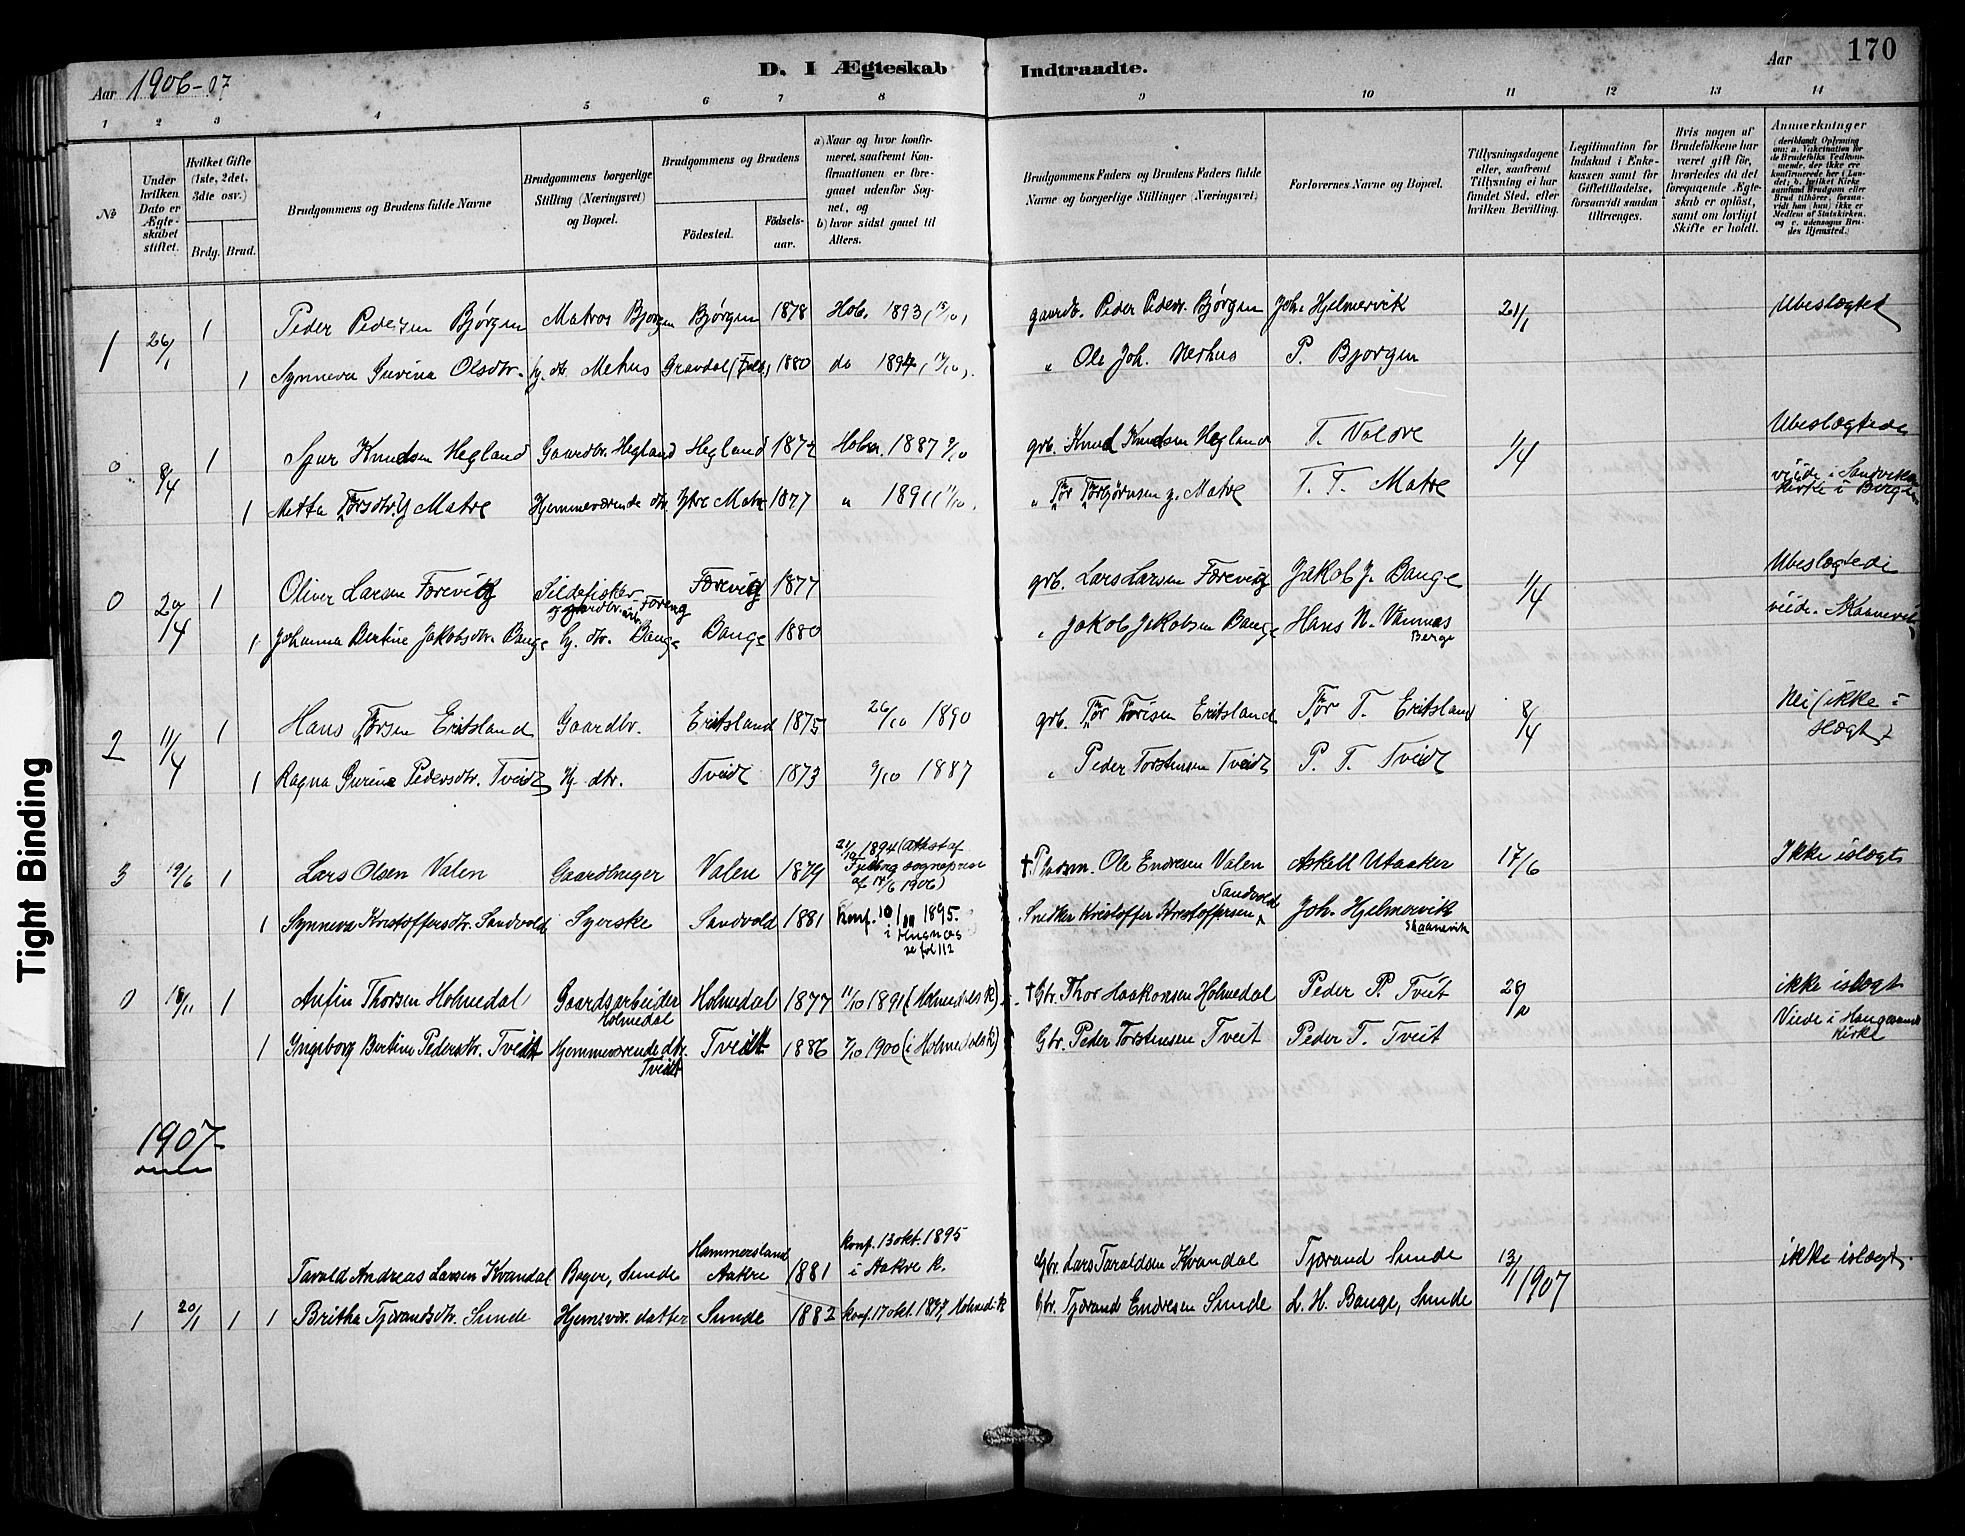 Aar 1906-07
D. I Ægteskab Indtraadte.
Aar 170
1 2 3 4 5 6 7 8 9 10 11 12 13 14
No
Under hvilken Dato er Ægteskabet stiftet.
Hvilket Gifte (1ste, 2det, 3dte osv.)
Brdg. Brud.
Brudgommens og Brudens fulde Navne
Brudgommens borgerlige Stilling (Næringsvei) og Bopæl.
Brudgommens og Brudens
Födested.
Födselsaar.
a) Naar og hvor konfirmeret, saafremt Konfirmationen er foregaaet udenfor Sognet, og
b) hvor sidst gaaet til Alters.
Brudgommens Faders og Brudens Faders fulde Navne og borgerlige Stillinger (Næringsvei)
Forlovernes Navne og Bopæl.
Tillysningsdagene eller, saafremt Tillysning ei har fundet Sted, efter hvilken Bevilling.
Legitimation for Indskud i Enkekassen samt for Giftetilladelse, forsaavidt saadan tiltrænges.
Hvis nogen af Brudefolkene har været gift før, hvorledes da det foregaaende Ægteskab er opløst, samt om lovligt Skifte er holdt.
Anmærkninger
(deriblandt Oplysning om: a. Vakcination for de Brudefolks Vedkommende, der ikke ere konfirmerede her i Landet; b. hvilket Kirkesamfund Brudgom eller Brud tilhører, forsaavidt han (hun) ikke er Medlem af Statskirken, og c. udensogns Brudes Hjemsted.)
1 26/1 1 Peder Pedersen Bjørgen Matros Bjørgen Bjørgen 1878 Hob. 1893, 15/10, gaardb. Peder Peders. Bjørgen Joh. Hjelmervik 21/1 Ubeslægted
1 Synneva Gurina Olsdtr. hj. dtr. Mehus Gravdal 1880 do 1894, " Ole Joh. Nerhus P. Bjørgen
0 8/4 1 Sjur Knudsen Hegland Gaardbr. Hegland Hegland 1872 1887 9/10 grb. Knud Knudsen Hegland T. Valvre 1/4 Ubeslægtede
1 Metta Torsdtr. Y Matre Hjemmeværende dtr. Ytre Matre 1877 " 1891 11/10. " Tor Torbjørnsen y. Matre T. T. Matre viede i Sandviken
Kirke i Bergen
0 20/4 1 Oliver Larsen Førevig Sildefisker Førevig 1877 grb. Lars Larsen Færevig Jakob J. Bauge 1/4 Ubeslægtede
1 Johanna Bertine Jakobsdtr. Bauge hj. dtr. Bauge Bauge 1880 " Jakob Jakobsen Bauge Hans N. Vannes viede. Skaanevik
Berge
2 11/4 1 Hans Torsen Eritsland Gaardbr. Eritsland 1875 26/10 1890 grb. Tor Torisen Eritsland Tor T. Eritsland 8/4 Nei (ikke i
slægt
1 Ragna Gurine Pedersdtr. Tveidt hj dtr. Tveidt 1873 9/10 1887 " Peder Torstensen Tveidt P. T. Tveidt
3 19/6 1 Lars Olsen Valen Gaardbruger Valen 1879 1894 (Attest af
sogneprest
af 14/6 1906)
† Ole Endresen Valen Askell Utaaker 17/6 Ikke islægt
1 Synneva Kristoffersdtr. Sandvold Syerske Sandvold 1881 Konf. 10/ 1895.
i Husnæs
se fol 112
Snedker Kristoffer Kristoffersen Sandvold Joh. Hjelmervik
Skaanevik
0 18/11 1 Anfin Thorsen Holmedal Gaardsarbeider Holmedal 1877 11/10 1891 (Holmedals K) † Gbr. Thor Haakonsen Holmedal Peder P. Tveit 28/10 ikke islægt
Holmedal
1 Ingeborg Bertine Pedersdtr. Tveidt Hjemmeværende dtr. Tveidt 1886 7/10 1900 (i Holmedals K) Gbr. Peder Torstensen Tveit Peder T. Tveit Viede i Haugesunds
Tveidt Kirke
1907
Tarald Andreas Larsen Kvandal Bager, Sunde Hammersland
Aakre 1881 konf. 13 okt. 1895
i Aakre k. Gbr. Lars Taraldsen Kvandal Tjerand Sunde 13/1 1907 ikke islægt.
1 20/1 1 1 Britha Tjerandsdtr. Sunde Hjemvær. datter Sunde 1882 konf. 17 okt. 1897, Holmed. k Gbr. Tjerand Endresen Sunde L. H. Bauge, Sunde
Tight Binding